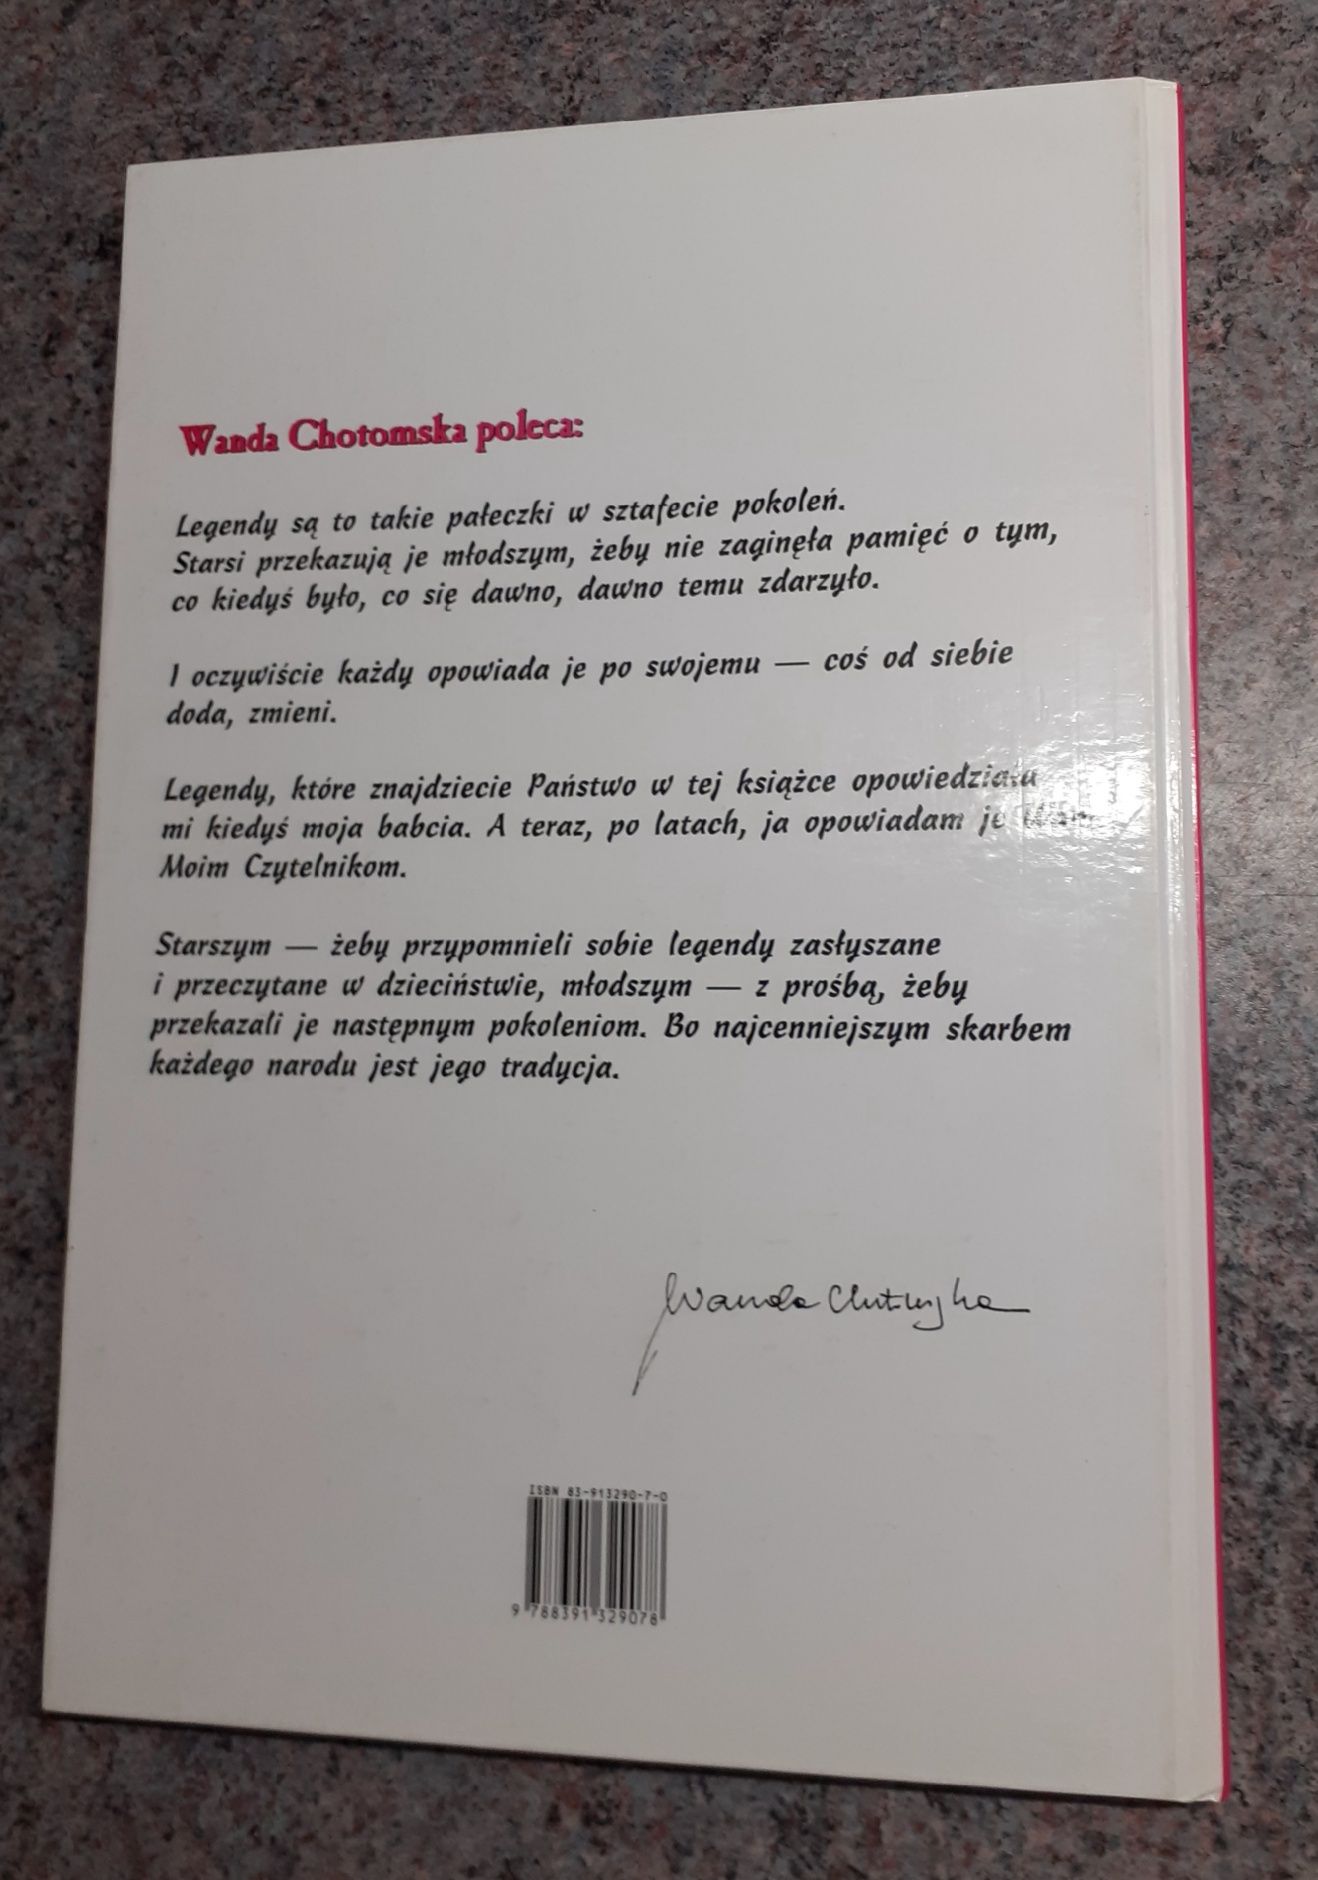 Wanda Chotomska poleca:
Legendy są to takie pałeczki w sztafecie pokoleń.
Starsi przekazują je młodszym, żeby nie zaginęła pamięć o tym,
co kiedyś było, co się dawno, dawno temu zdarzyło.
I oczywiście każdy opowiada je po swojemu — coś od siebie
doda, zmieni.
Legendy, które znajdziecie Państwo w tej książce opowiedziała
mi kiedyś moja babcia. A teraz, po latach, ja opowiadam je
Moim Czytelnikom.
Starszym — żeby przypomnieli sobie legendy zasłyszane
i przeczytane w dzieciństwie, młodszym — z prośbą, żeby
przekazali je następnym pokoleniom. Bo najcenniejszym skarbem
każdego narodu jest jego tradycja.
Wanda Chotomska
ISBN 83-913290-7-0
9 788391 329078